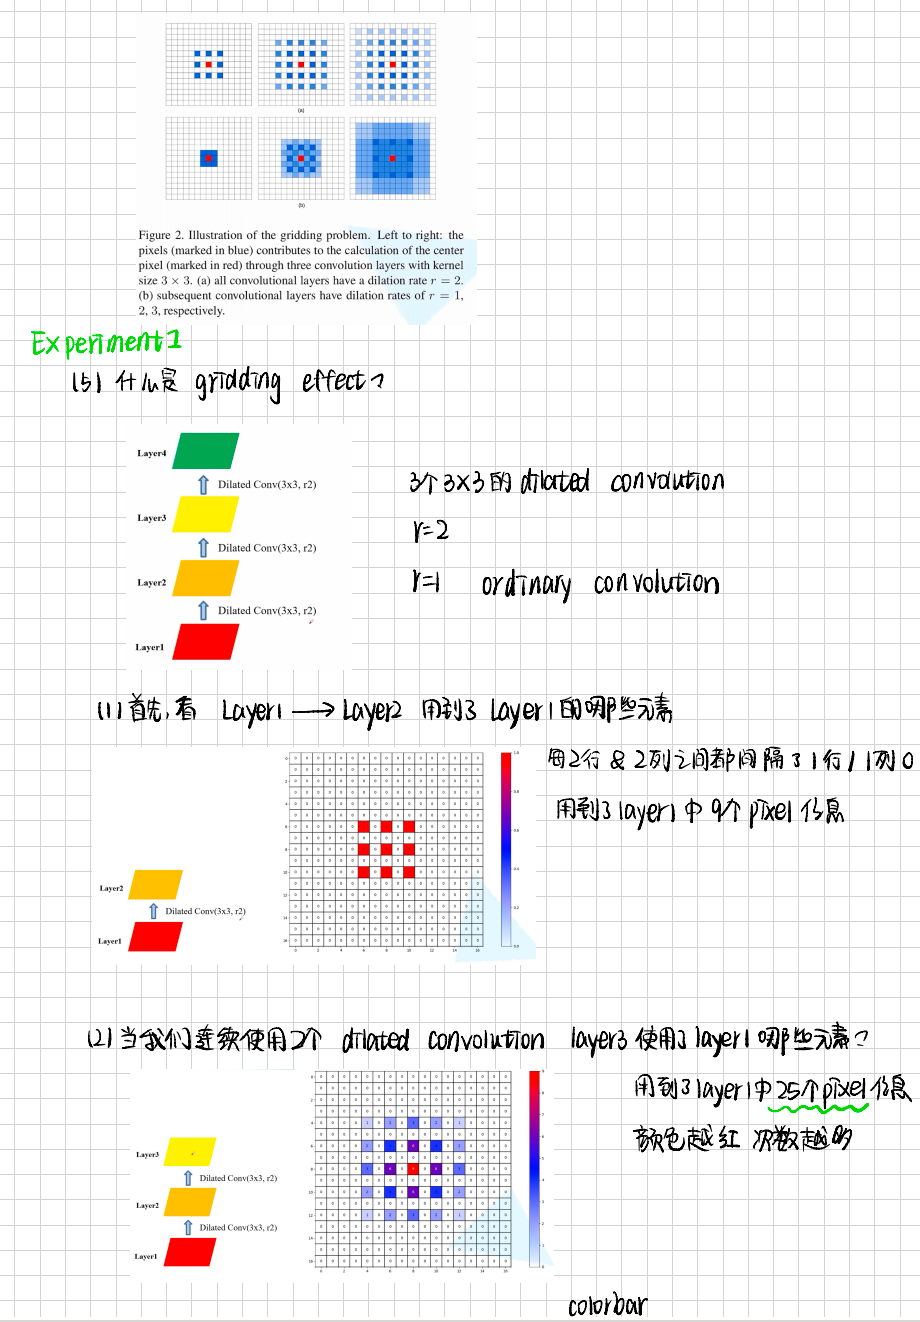 (a)
(b)
Figure 2. Illustration of the gridding problem. Left to right: the
pixels (marked in blue) contributes to the calculation of the center
pixel (marked in red) through three convolution layers with kernel
size 3 × 3. (a) all convolutional layers have a dilation rate r = 2.
(b) subsequent convolutional layers have dilation rates of r = 1,
2, 3, respectively.
Experiment1
(5) 什么是 gridding effect?
Layer4
Dilated Conv(3x3, r2)
Layer3
Dilated Conv(3x3, r2)
Layer2
Dilated Conv(3x3, r2)
Layer1
3个3×3的 dilated convolution
r=2
r=1 ordinary convolution
(1) 首先,看 Layer1 → Layer2 用到了 Layer1的哪些元素
每2行 & 2列之间都间隔了1行/1列0
用到了layer1中9个pixel信息
Layer2
Dilated Conv(3x3, r2)
Layer1
(2) 当我们连续使用2个 dilated convolution layer3 使用了layer1哪些元素?
用到了layer1中25个pixel信息
颜色越红 次数越多
Layer3
Dilated Conv(3x3, r2)
Layer2
Dilated Conv(3x3, r2)
Layer1
colorbar